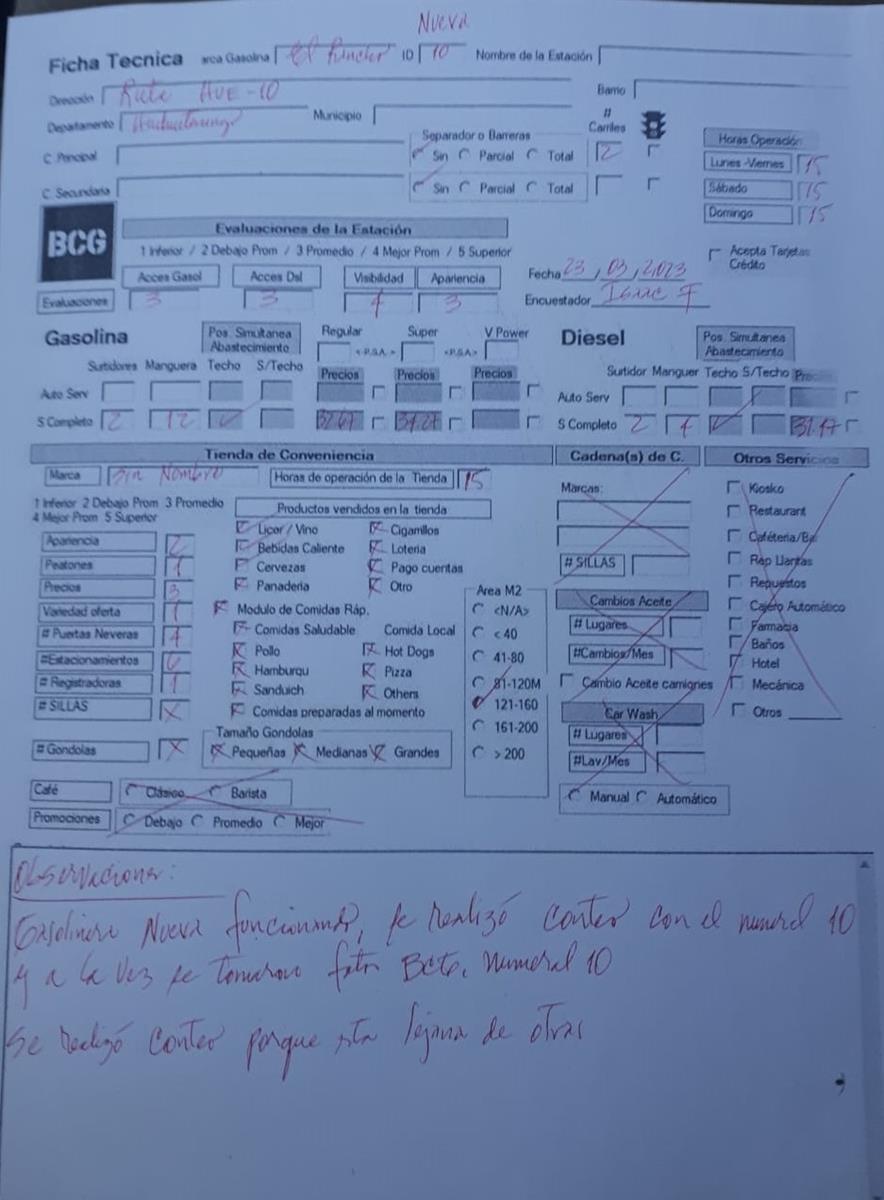 Nueva
Ficha Tecnica arca Gasolina El ID 10 Nombre de la Estación
Dirección Ruta HUE-10 Barrio
Departamento Municipio # Carriles
Separador o Barreras
Horas Operación
C Principal Sin Parcial Total 2 Lunes -Viernes 15
C. Secundaria Sin Parcial Total Sábado 15
Domingo 15
BCG
Evaluaciones de la Estación
1 Inferior / 2 Debajo Prom / 3 Promedio / 4 Mejor Prom / 5 Superior
Acepta Tarjetas Crédito
Acces Gasol Acces Dsl Visibilidad Apariencia Fecha 23, 03, 2,023
Evaluaciones 3 3 4 3 Encuestador Isaac F
Gasolina Pos. Simultanea Abastecimiento Regular Super V Power Diesel Pos. Simultanea Abastecimiento
<-P.S.A.-> <-P.S.A.->
Surtidores Manguera Techo S/Techo Precios Precios Precios Surtidor Manguer Techo S/Techo
Auto Serv Auto Serv
S Completo 2 12 S Completo 2 4
Tienda de Conveniencia Cadena(s) de C. Otros Servicios
Marca Sin Nombre Horas de operación de la Tienda 15 Marcas: Kiosko
1 Inferior 2 Debajo Prom 3 Promedio
4 Mejor Prom 5 Superior
Productos vendidos en la tienda Restaurant
Apariencia 2 Licor / Vino Cigarrillos Caféteria/Bar
Peatones 1 Bebidas Caliente Loteria # SILLAS Rép Llantas
Precios 3 Cervezas Pago cuentas Repuestos
Panaderia Otro Area M2
Variedad oferta 1 Modulo de Comidas Ráp. <N/A> Cambios Aceite Cajero Automático
# Puertas Neveras 4 Comidas Saludable Comida Local < 40 # Lugares Farmacia
#Estacionamientos Pollo Hot Dogs 41-80 #Cambios/Mes Baños
Hamburqu Pizza Hotel
# Registradoras 1 Sanduich Others 81-120M Cambio Aceite camiones Mecánica
# SILLAS X Comidas preparadas al momento 121-160 Car Wash Otros
Tamaño Gondolas 161-200 # Lugares
# Gondolas X Pequeñas Medianas Grandes > 200 #Lav/Mes
Café Clásico Barista Manual Automático
Promociones Debajo Promedio Mejor
Observaciones:
Gasolinera Nueva funcionando, se realizó conteo con el numeral 10
y a la vez se tomaron fotos Bcto. numeral 10
Se realizó conteo porque esta lejana de otras